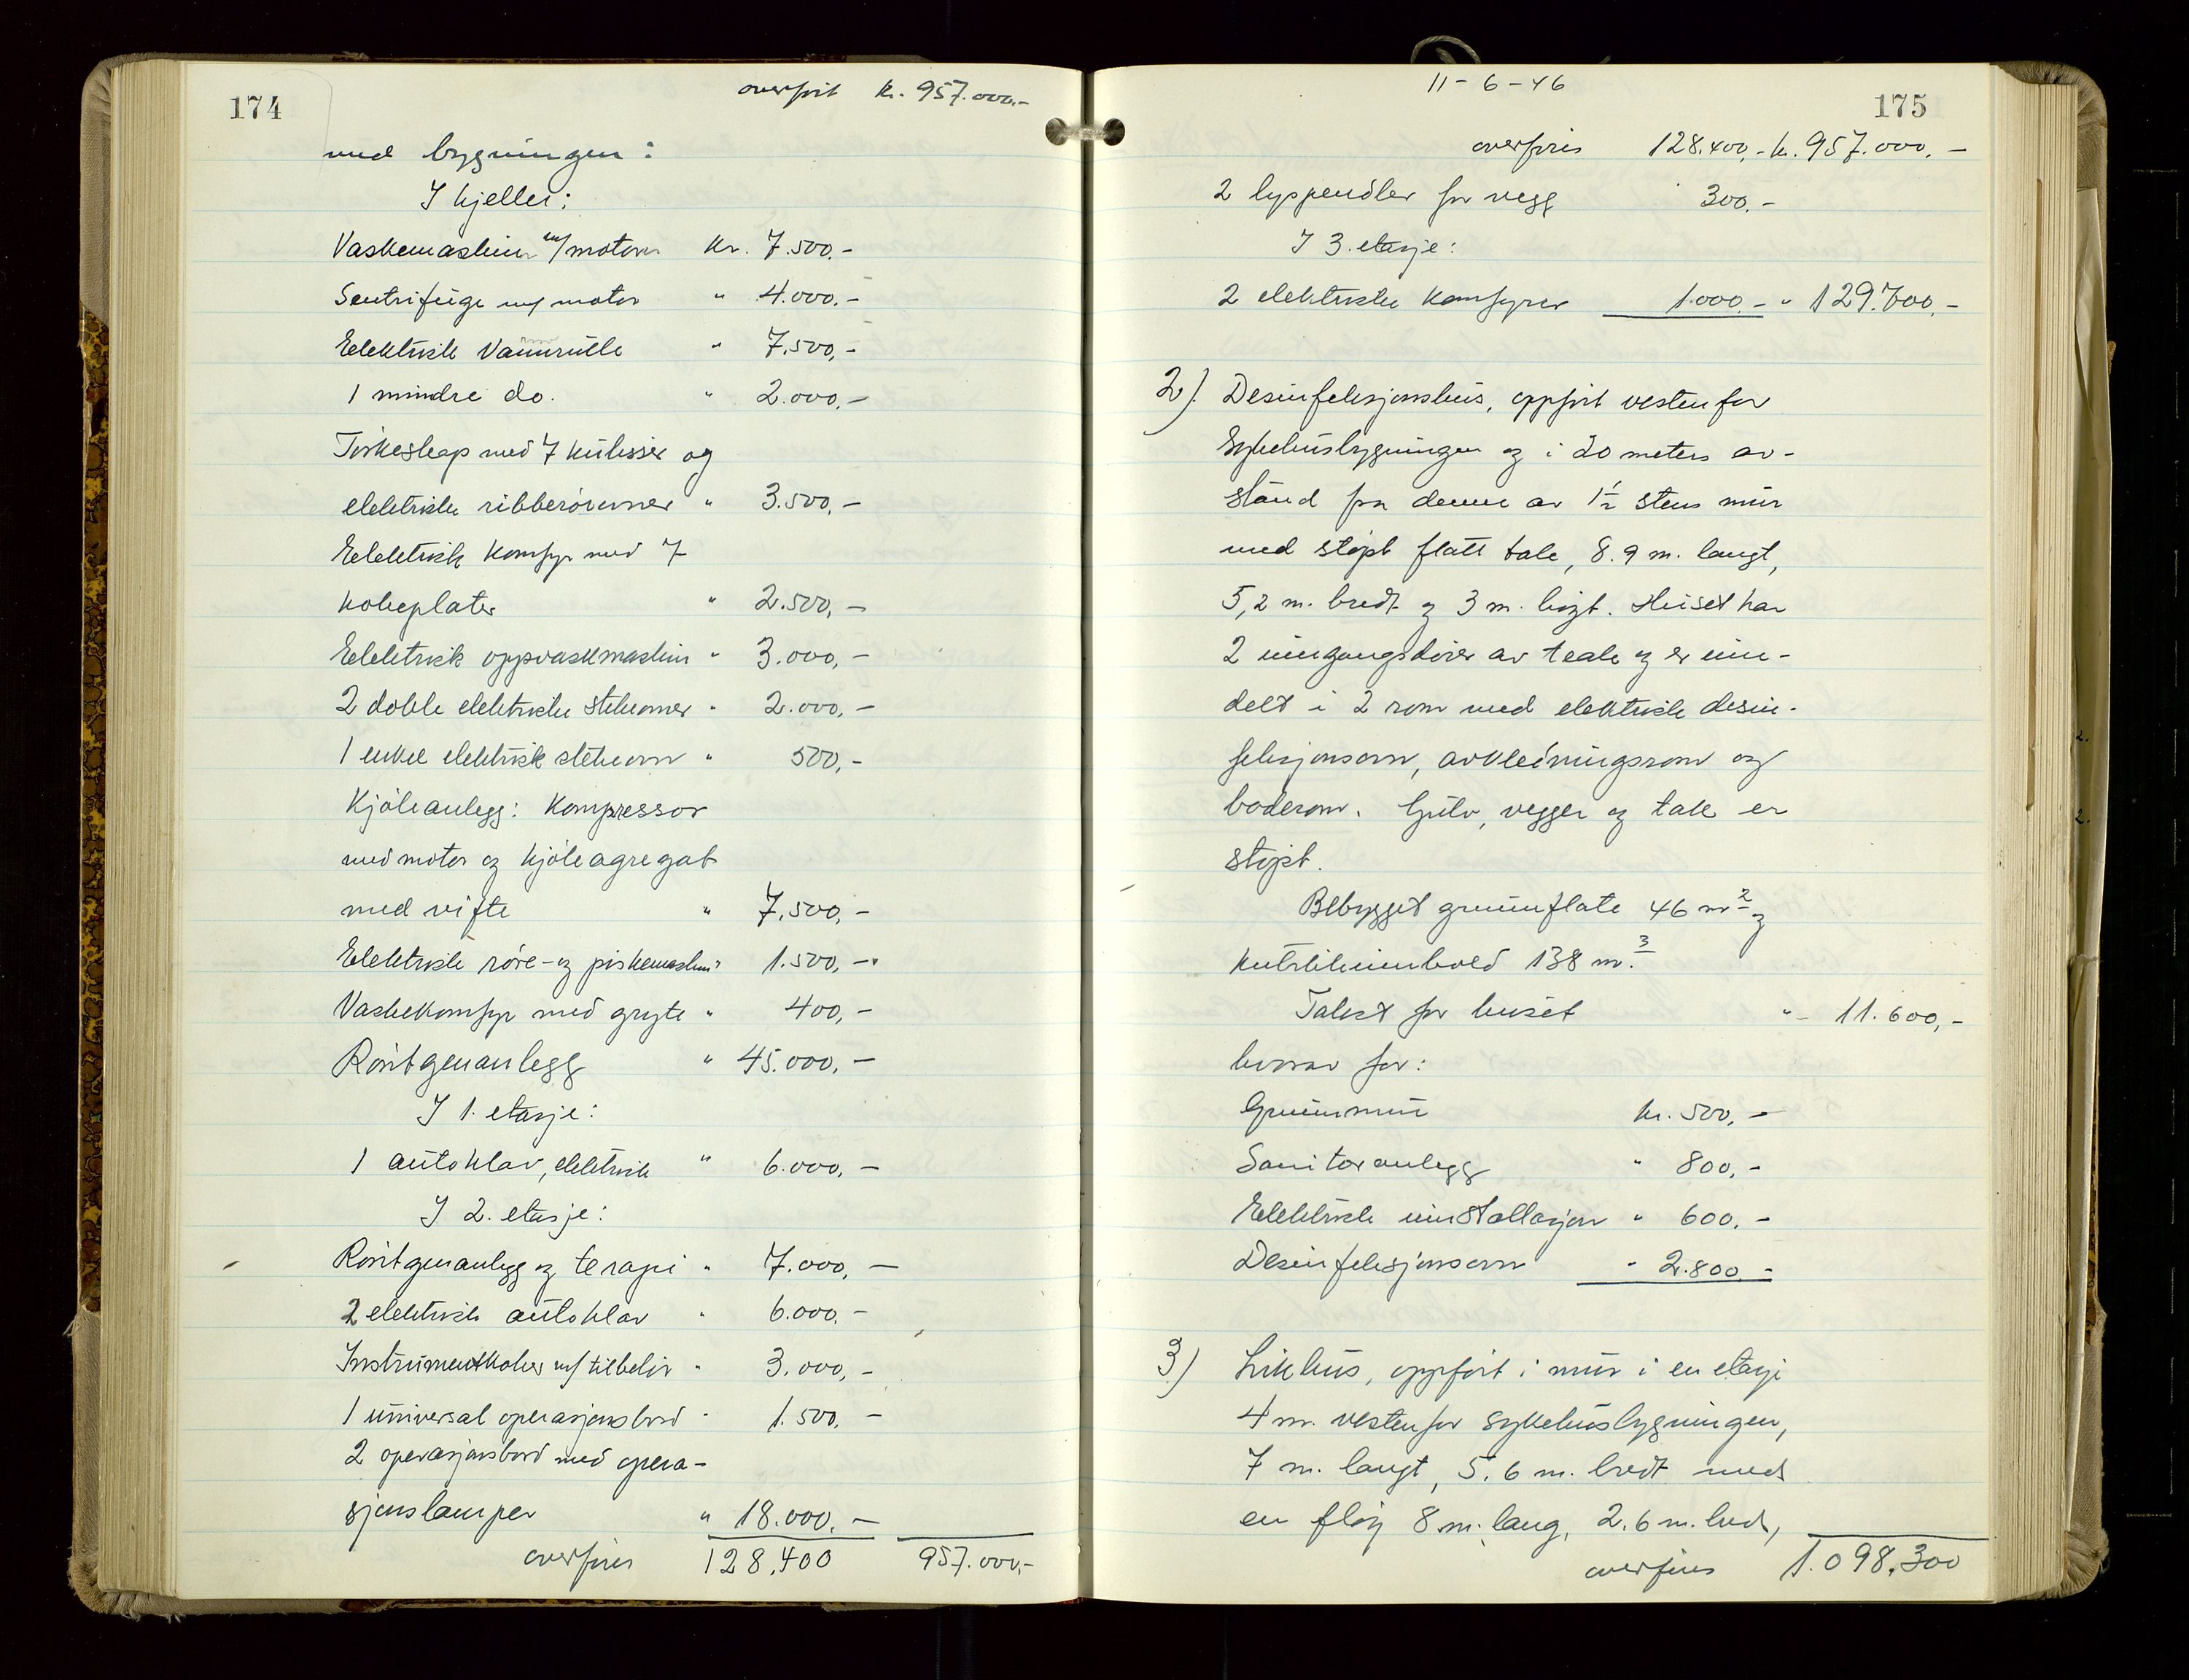 174
overført kr. 957.000,-
med bygningen:
I kjeller:
Vaskemaskin m/motor kr. 7.500.-
Sentrifuge m/ motor " 4.000.-
Elektrisk Vannrulle " 7.500,-
1 mindre do. " 2.000,-
Tørkeskap med 7 kulisser og
elektriske ribberørovner " 3.500,-
Elektrisk komfyr med 7
kokeplater " 2.500,-
Elektrisk oppvaskmaskin " 3.000,-
2 doble elektriske stekeovner " 2.000,-
1 enkel elektrisk stekeovn " 500,-
Kjøleanlegg: Kompressor
med motor og kjøleagregat
med vifte " 7.500,-
Elektrisk røre- og piskemaskin " 1.500,-
Vaskekomfyr med gryte " 400,-
Røntgenanlegg " 45.000,-
I 1. etasje:
1 autoklav, elektrisk " 6.000,-
I 2. etasje:
Røntgenanlegg og terapi " 7.000,-
2 elektrisk autoklav " 6.000.-
Instrumentkoker m/ tilbehør " 3.000,-
1 universal operasjonsbord " 1.500.-
2 operasjonsbord med opera-
sjonslamper " 18.000.-
overføres 128.400 957.000,-
11-6-46
175
overføres 128.400,- kr. 957.000,-
2 lyspendler for vegg 300.-
I 3. etasje:
2 elektriske komfyrer 1.000.- " 129.700,-
2). Desinfeksjonshus, oppført vestenfor
Sykehusbygningen og i 20 meters av-
stand fra denne av 1½ stens mur
med støpt flatt tak, 8.9 m. langt,
5,2 m. bredt og 3 m. høgt. Huset har
2 inngangsdører av teak og er inn-
delt i 2 rom med elektrisk desin-
feksjonsovn, avkledningsrom og
baderom. Gulv, vegger og tak er
støpt.
Bebygget grunnflate 46 m² og
kubikkinnhold 138 m³.
Takst for huset " 11.600,-
hvorav for:
Grunnmur kr. 500,-
Sanitæranlegg " 800,-
Elektrisk innstallasjon " 600.-
Desinfeksjonsovn " 2.800.-
3) Likhus, oppført i mur i en etasje
4 m. vestenfor sykehusbygningen,
7 m. langt, 5.6 m. bredt med
en fløy 8 m. lang, 2.6 m. bred,
overføres 1.098.300